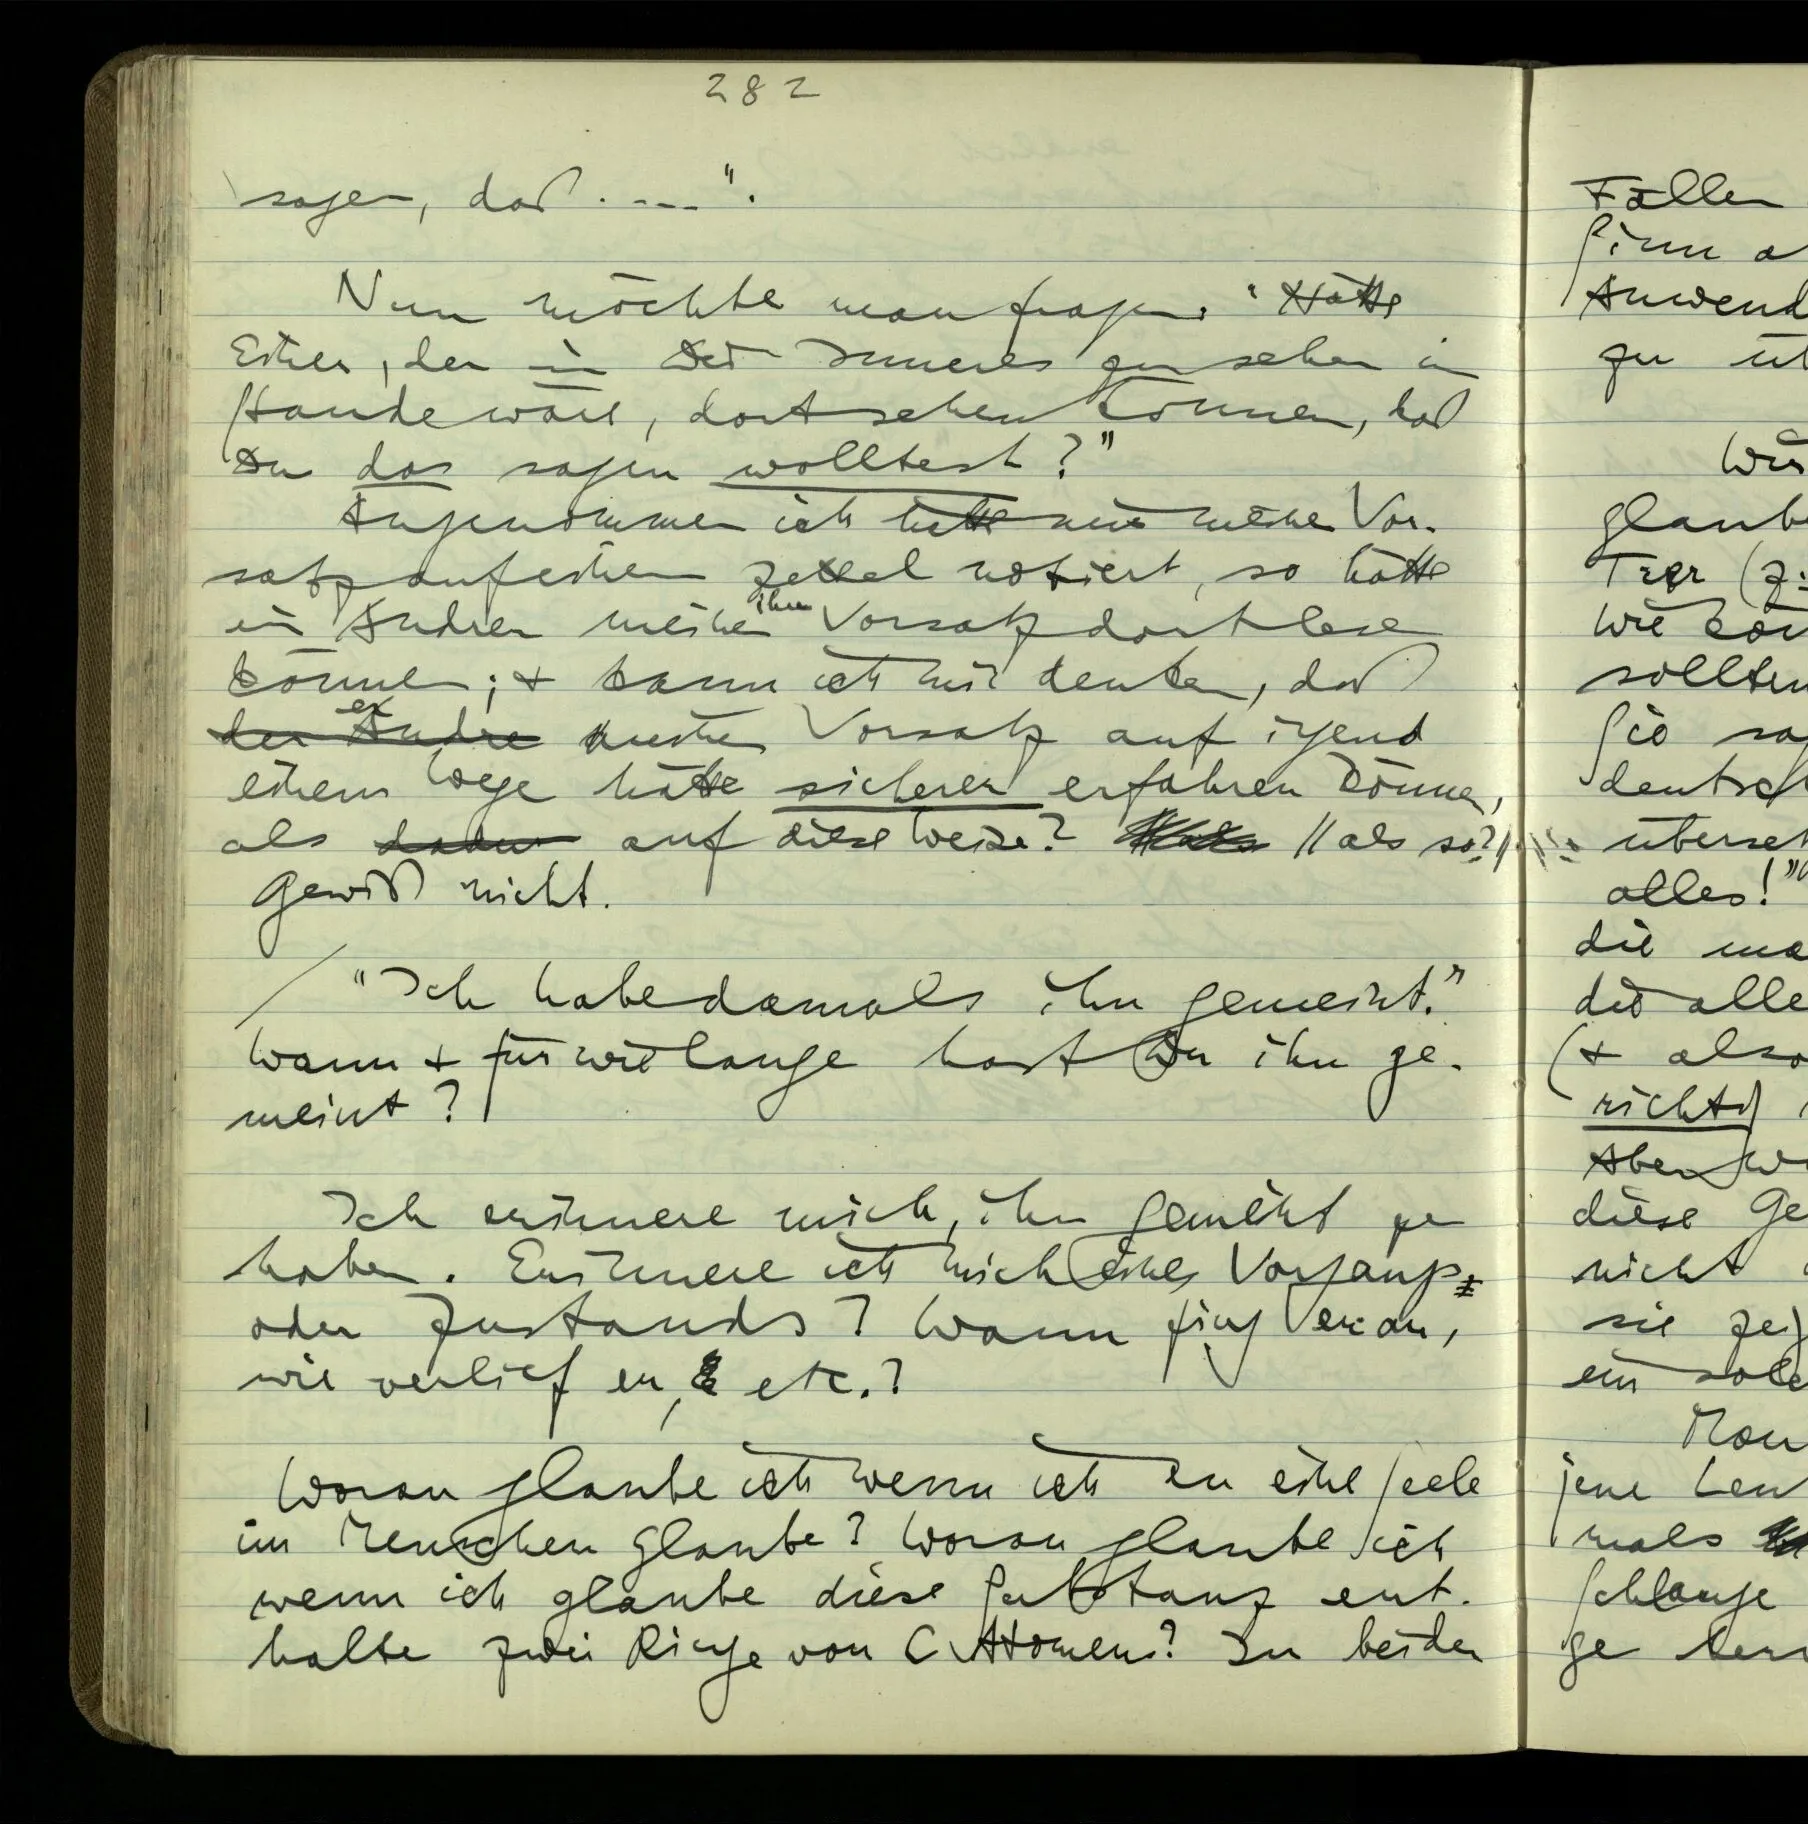 282
sagen, daß . --- ".
Nun möchte man fragen: "Hätte
Einer, der in Dein Inneres zu sehen im
Stande wäre, dort sehen können, daß
Du das sagen wolltest?"
Angenommen ich hätte mir meinen Vor-
satz auf einen Zettel notiert, so hätte
ein Andrer meinen ihn Vorsatz dort lesen
können; + kann ich mir denken, daß
der Andre er meinen Vorsatz auf irgend
einem Wege hätte sicherer erfahren können,
als auf diese Weise? // als so? //
Gewiß nicht.
/ "Ich habe damals ihn gemeint."
Wann + für wie lange hast Du ihn ge-
meint?
Ich erinnere mich, ihn gemeint zu
haben. Erinnere ich mich eines Vorgangs
oder Zustands? Wann fing er an,
wie verlief er, etc.?
Woran glaube ich wenn ich an eine Seele
im Menschen glaube? Woran glaube ich
wenn ich glaube diese Substanz ent-
halte zwei Ringe von C Atomen? In beiden
Fällen
Sinn
Anwend
zu
glaube
Tier (z.
wie kön
sollten
Sie
deutsch
überset
alles!"
die
alle
(+ also
richtig
Aber
diese Ge
nicht
sie
ein
Man
jene
mals
Schlange
ge